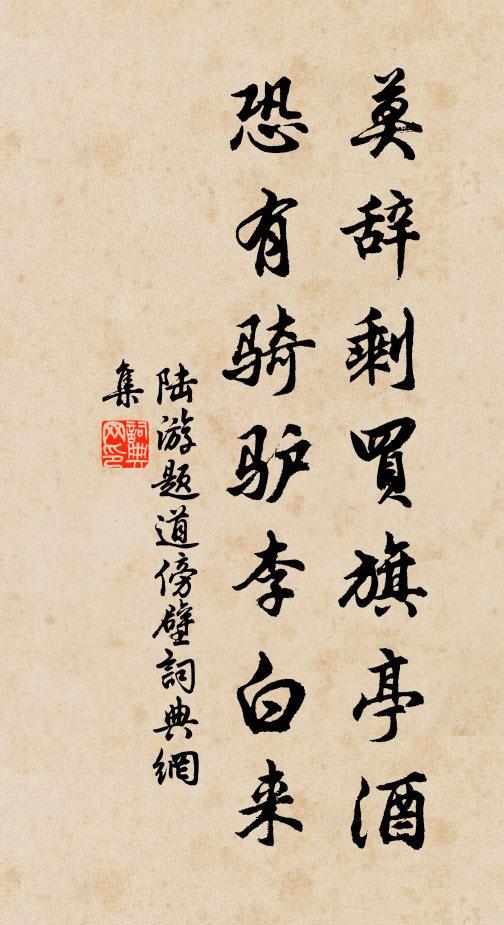 莫辞剩買旗亭酒
恐有骑驴李白来
陆游题道傍壁詞典網
集
詞典网印